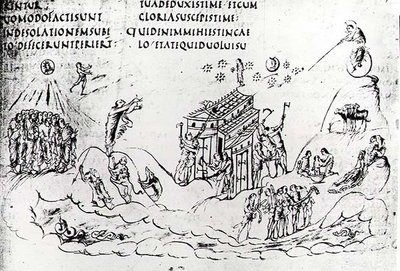 RENTUR
UOMODOFACTISUNT
INDESOLATIONEMSUBI
TO DEFECERUNTPERIERT
TUADEDUXISTIME ETCUM
GLORIASUSCEPISTIME·
QUIDENIMMIHIESTINCAE
LO ETATEQUIDUOLUISU